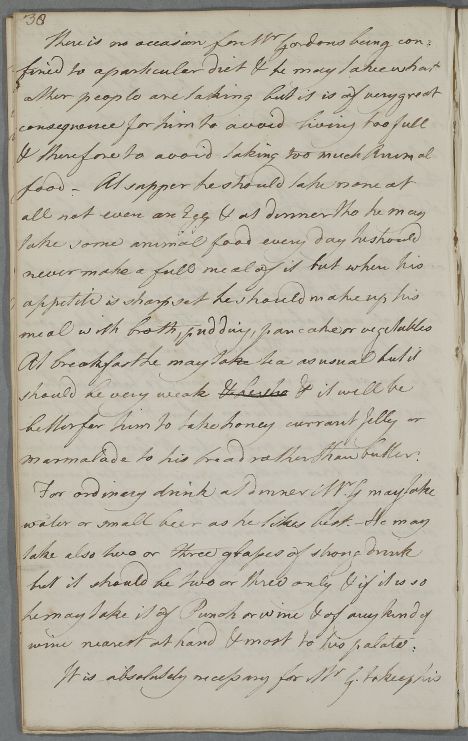 38
There is no occasion for Mr Gordons being con:
fined to a particular diet & he may take what
other people are taking but it is of very great
consequence for him to avoid living too full
& therefore to avoid taking too much Animal
food - At supper he should take none at
all not even an Egg & at dinner tho he may
take some animal food every day he should
never make a full meal of it but when his
appetite is sharp set he should make up his
meal with broth, pudding, pancake or vegetables
At breakfast he may take tea as usual but it
should be very weak & it will be
better for him to take honey currant Jelly or
marmalade to his bread rather than butter.
For ordinary drink at dinner Mr G may take
water or small beer as he likes best - He may
take also two or three glasses of strong drink
but it should be two or three only & if it is so
he may take it of Punch or wine & of any kind of
wine nearest at hand & most to his palate.
It is absolutely necessary for Mr G. to keep his